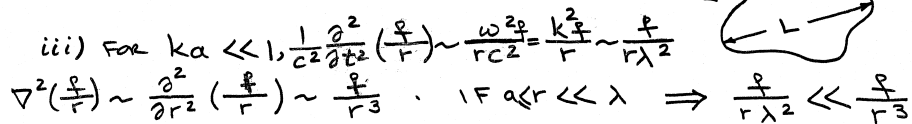 iii) FOR ka << 1, 1/c² ∂²/∂t² (f/r) ~ ω²f/rc² = k²f/r ~ f/rλ² L
∇²(f/r) ~ ∂²/∂r² (f/r) ~ f/r³ . IF a≤r << λ ⇒ f/rλ² << f/r³